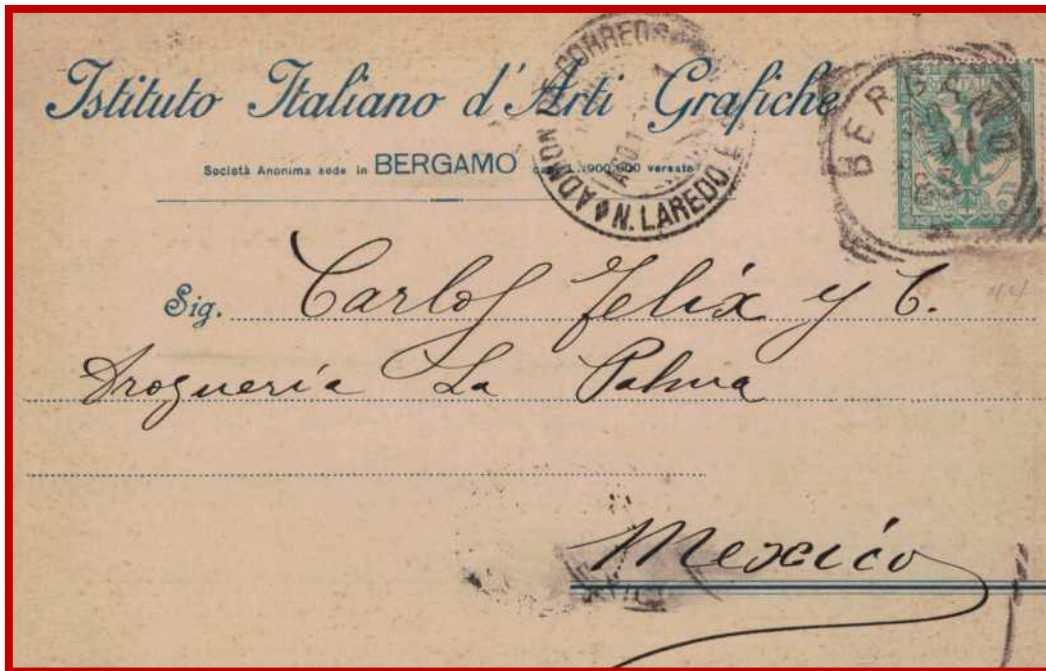 Istituto Italiano d'Arti Grafiche
Società Anonima sede in BERGAMO versato
ADMON DE CORREOS
N. LAREDO
BERGAMO
5
Sig. Carlos Felix y C.
44
Droguería La Palma
Mexico